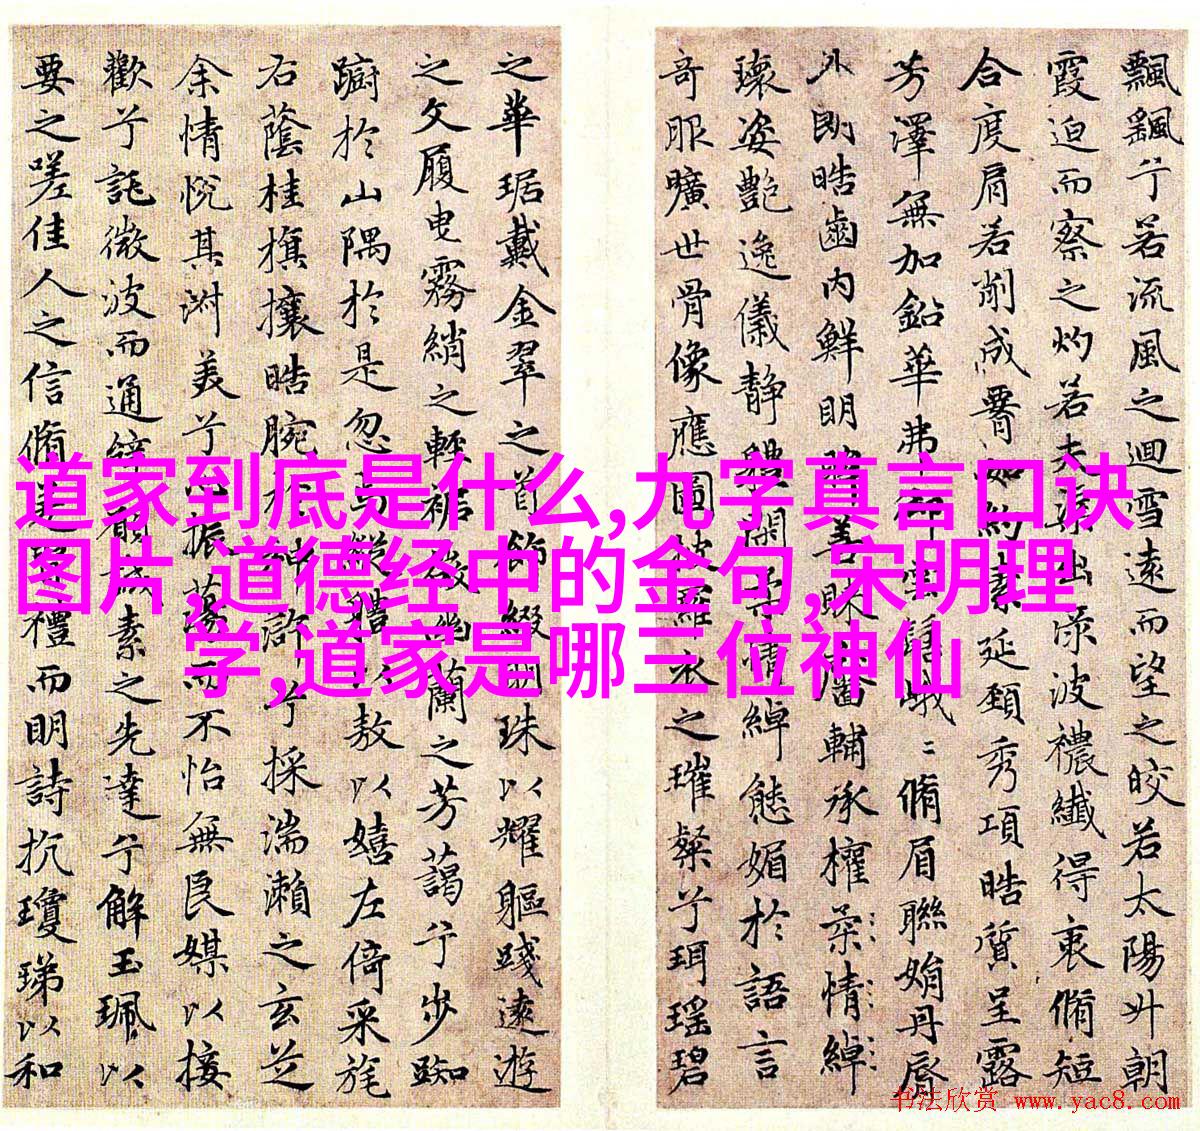 飄飖兮若流風之迴雪遠而望之皎若太陽升朝
霞迫而察之灼若夫渠出渌波穠纖得衷脩短
合度肩若削成如約素延頸秀項皓質呈露
芳澤無加鉛華弗峨〻脩眉聯娟丹脣
外朗皓齒内鮮明眸善睞輔承權柔情綽
瓌姿艶逸儀静體閑情綽態媚於語言
奇服曠世骨像應圖披羅衣之璀粲兮珥瑶碧
之華琚戴金翠之首飾綴明珠以耀軀踐遠遊
之文履曳霧綃之輕裾幽蘭之芳藹兮步踟
躕於山隅於是忽焉縱體以敖以嬉左倚采旄
右蔭桂旗攘皓腕於神滸兮採湍瀨之玄芝
余情悅其淑美兮心振蕩而不怡無良媒以接
歡兮託微波而通辭願誠素之先達兮解玉珮以
要之嗟佳人之信脩禮而明詩抗瓊珶以和
道家到底是什么,九字真言口诀
图片,道德经中的金句,宋明理
学,道家是哪三位神仙
书法欣赏 www.yac8.com